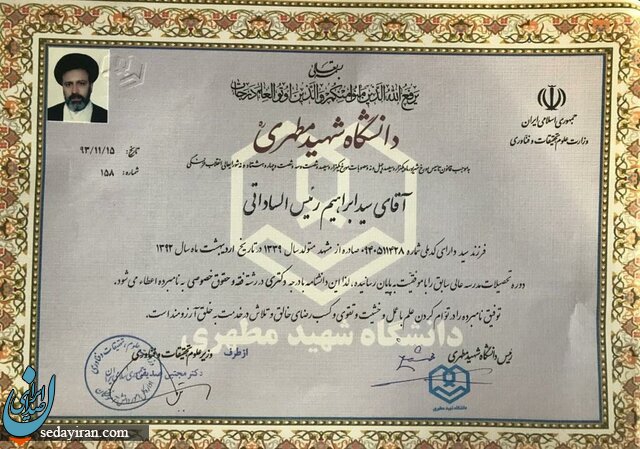 بسمه تعالی
یرفع الله الذین آمنوا منکم و الذین اوتوا العلم درجات
جمهوری اسلامی ایران
وزارت علوم، تحقیقات و فناوری
دانشگاه شهید مطهری
تاریخ: ۹۳/۱۱/۱۵
شماره: ۱۵۸
آقای سید ابراهیم رئیس الساداتی
فرزند سید دارای کد ملی شماره ۰۹۴۰۵۱۱۴۲۸ صادره از مشهد متولد سال ۱۳۳۹ در تاریخ اردیبهشت ماه سال ۱۳۹۲
دوره تحصیلات مدرسه عالی سابق را با موفقیت به پایان رسانیده، لذا این دانشنامه با درجه دکتری در رشته فقه و حقوق خصوصی به نامبرده اعطاء می شود.
توفیق نامبرده را در توأم کردن علم با عمل و خشیت و تقوی و کسب رضای خالق و تلاش در خدمت به خلق آرزومند است.
دانشگاه شهید مطهری
رئیس دانشگاه شهید مطهری
وزیر علوم تحقیقات و فناوری
از طرف
دکتر مجتبی صدیقی
دانشگاه شهید مطهری
صدای ایران
sedayiran.com